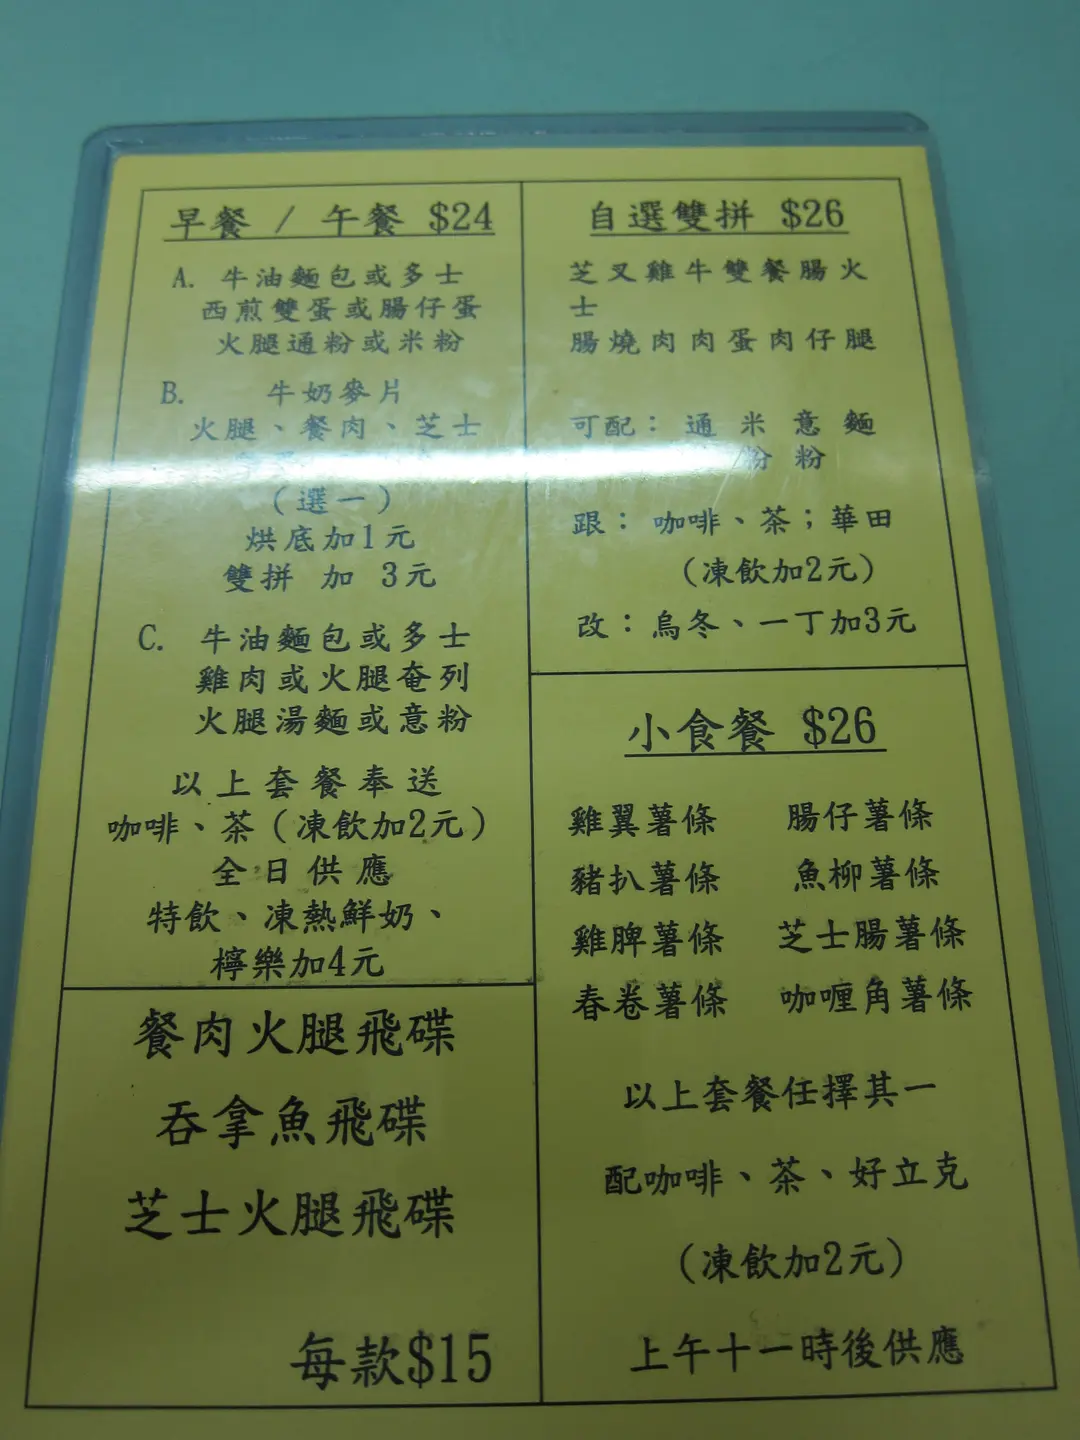 早餐 / 午餐 $24
A. 牛油麵包或多士
西煎雙蛋或腸仔蛋
火腿通粉或米粉
B. 牛奶麥片
火腿、餐肉、芝士
(選一)
烘底加1元
雙拼 加 3元
C. 牛油麵包或多士
雞肉或火腿奄列
火腿湯麵或意粉
以上套餐奉送
咖啡、茶(凍飲加2元)
全日供應
特飲、凍熱鮮奶、
檸樂加4元
餐肉火腿飛碟
吞拿魚飛碟
芝士火腿飛碟
每款$15
自選雙拼 $26
芝叉雞牛雙餐腸火
士
腸燒肉肉蛋肉仔腿
可配: 通米意麵
粉粉
跟: 咖啡、茶;華田
(凍飲加2元)
改:烏冬、一丁加3元
小食餐 $26
雞翼薯條 腸仔薯條
豬扒薯條 魚柳薯條
雞脾薯條 芝士腸薯條
春卷薯條 咖喱角薯條
以上套餐任擇其一
配咖啡、茶、好立克
(凍飲加2元)
上午十一時後供應